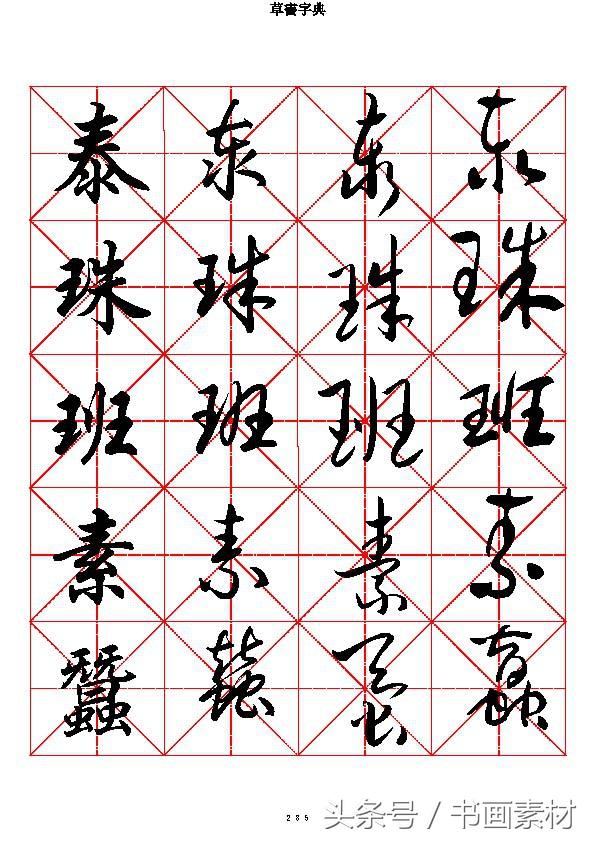 草書字典
泰 泰 泰 泰
珠 珠 珠 珠
班 班 班 班
素 素 素 素
蠶 蠶 蠶 蠶
285
头条号 / 书画素材